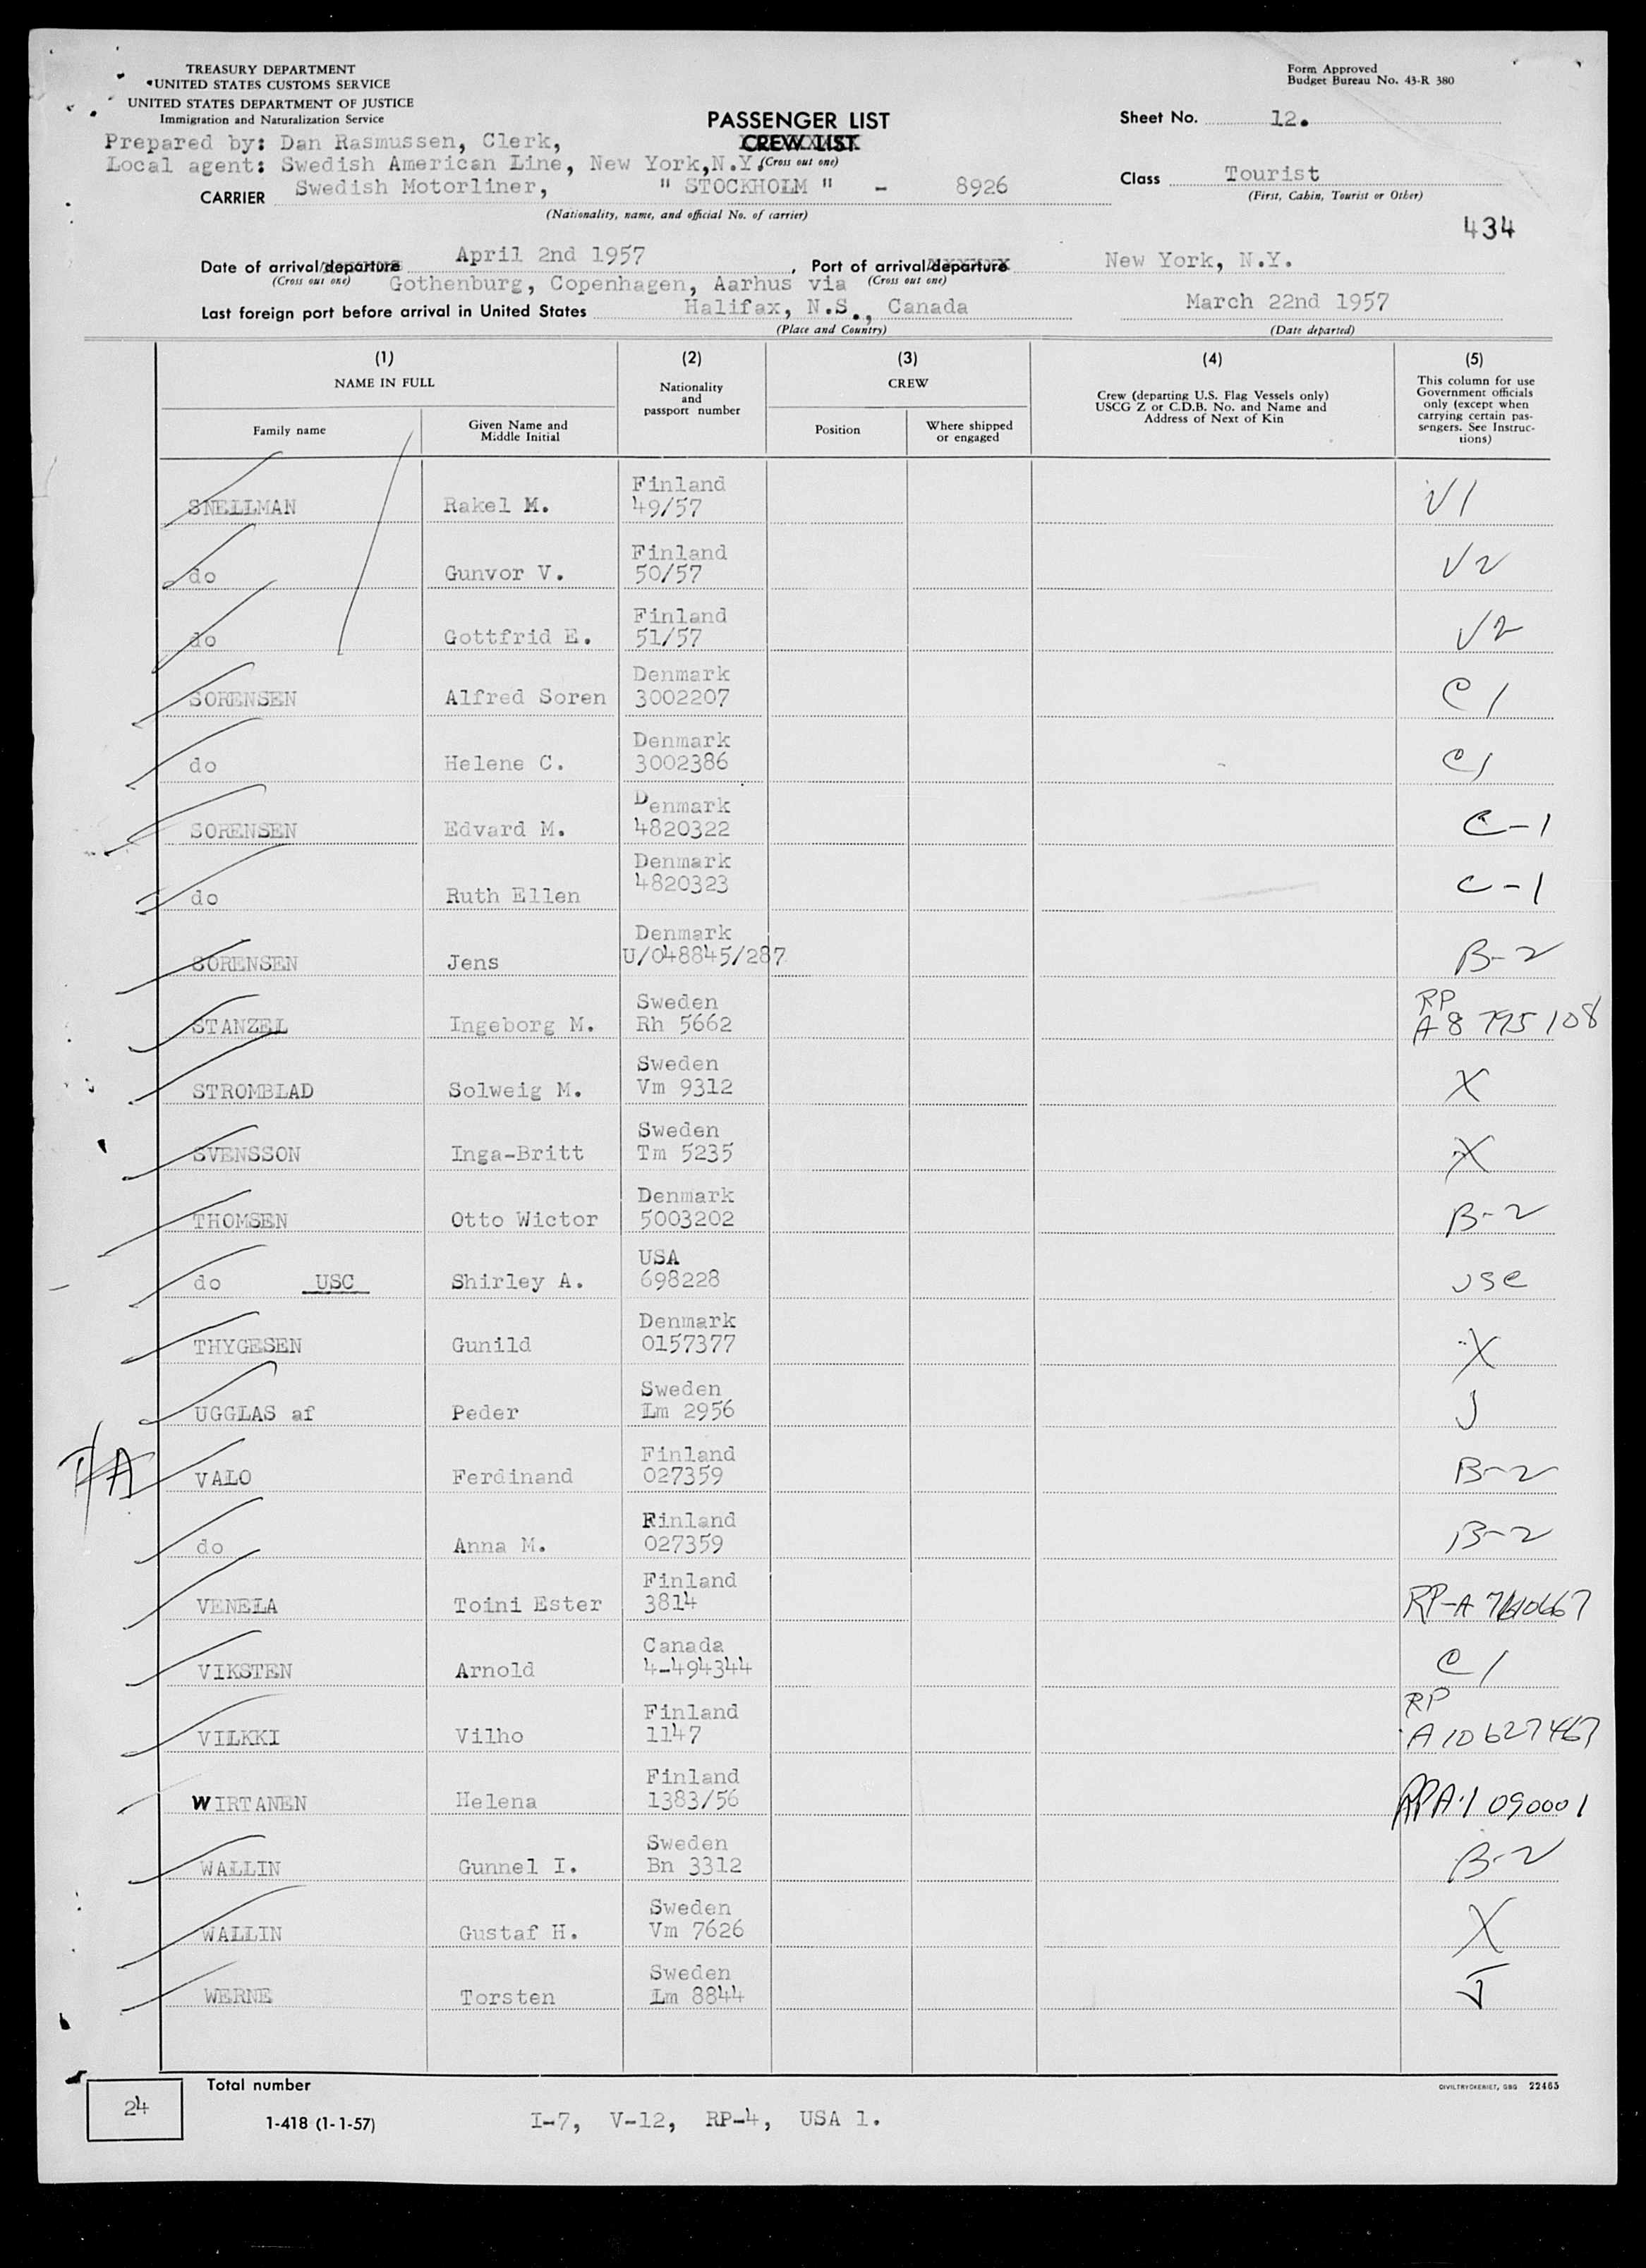 TREASURY DEPARTMENT
UNITED STATES CUSTOMS SERVICE
UNITED STATES DEPARTMENT OF JUSTICE
Immigration and Naturalization Service
Form Approved
Budget Bureau No. 43-R 380
PASSENGER LIST
CREW LIST
(Cross out one)
Sheet No. 12.
Prepared by: Dan Rasmussen, Clerk,
Local agent: Swedish American Line, New York, N.Y.
CARRIER Swedish Motorliner, " STOCKHOLM " - 8926
(Nationality, name, and official No. of carrier)
Class Tourist
(First, Cabin, Tourist or Other)
434
Date of arrival/departure April 2nd 1957, Port of arrival/departure New York, N.Y.
(Cross out one) Gothenburg, Copenhagen, Aarhus via (Cross out one)
Last foreign port before arrival in United States Halifax, N.S., Canada March 22nd 1957
(Place and Country) (Date departed)
(1) (2) (3) (4) (5)
NAME IN FULL
Family name
Given Name and Middle Initial
Nationality and passport number
CREW
Position
Where shipped or engaged
Crew (departing U.S. Flag Vessels only)
USCG Z or C.D.B. No. and Name and
Address of Next of Kin
This column for use
Government officials
only (except when
carrying certain pas-
sengers. See Instruc-
tions)
SNELLMAN Rakel M. Finland 49/57 V1
do Gunvor V. Finland 50/57 V2
do Gottfrid E. Finland 51/57 V2
SORENSEN Alfred Soren Denmark 3002207 C1
do Helene C. Denmark 3002386 C1
SORENSEN Edvard M. Denmark 4820322 C-1
do Ruth Ellen Denmark 4820323 C-1
SORENSEN Jens Denmark U/048845/287 B-2
STANZEL Ingeborg M. Sweden Rh 5662 RP A8 795 108
STROMBLAD Solweig M. Sweden Vm 9312 X
SVENSSON Inga-Britt Sweden Tm 5235 X
THOMSEN Otto Wictor Denmark 5003202 B-2
do USC Shirley A. USA 698228 USC
THYGESEN Gunild Denmark 0157377 X
UGGLAS af Peder Sweden Lm 2956 J
VALO Ferdinand Finland 027359 B-2
do Anna M. Finland 027359 B-2
VENELA Toini Ester Finland 3814 RP-A
VIKSTEN Arnold Canada 4-494344 C1
VILKKI Vilho Finland 1147 RP A10 627 467
WIRTANEN Helena Finland 1383/56 090001
WALLIN Gunnel I. Sweden Bn 3312 B-2
WALLIN Gustaf H. Sweden Vm 7626 X
WERNE Torsten Sweden Lm 8844 J
24
Total number
CIVILTRYCKERIET, GBG 22465
1-418 (1-1-57)
I-7, V-12, RP-4, USA 1.